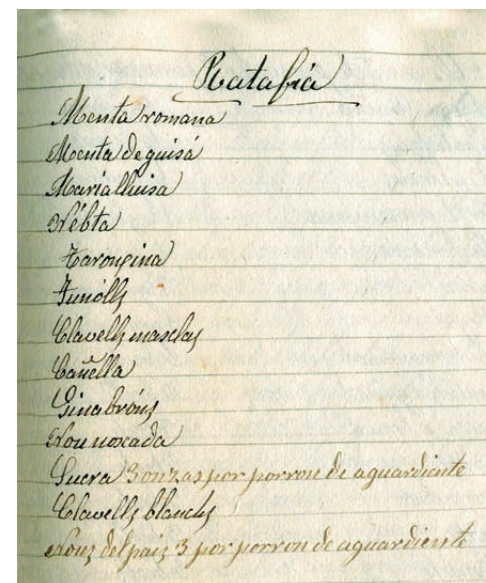 Ratafia
Menta romana
Menta de guisá
Maria lluisa
Nébta
Tarongina
Funólls
Clavells masclas
Cañella
Ginabróns
Nou noscada
Sucra 3 onzas por porron de aguardiente
Clavells blanchs
Nous del pais 3 por porron de aguardiente